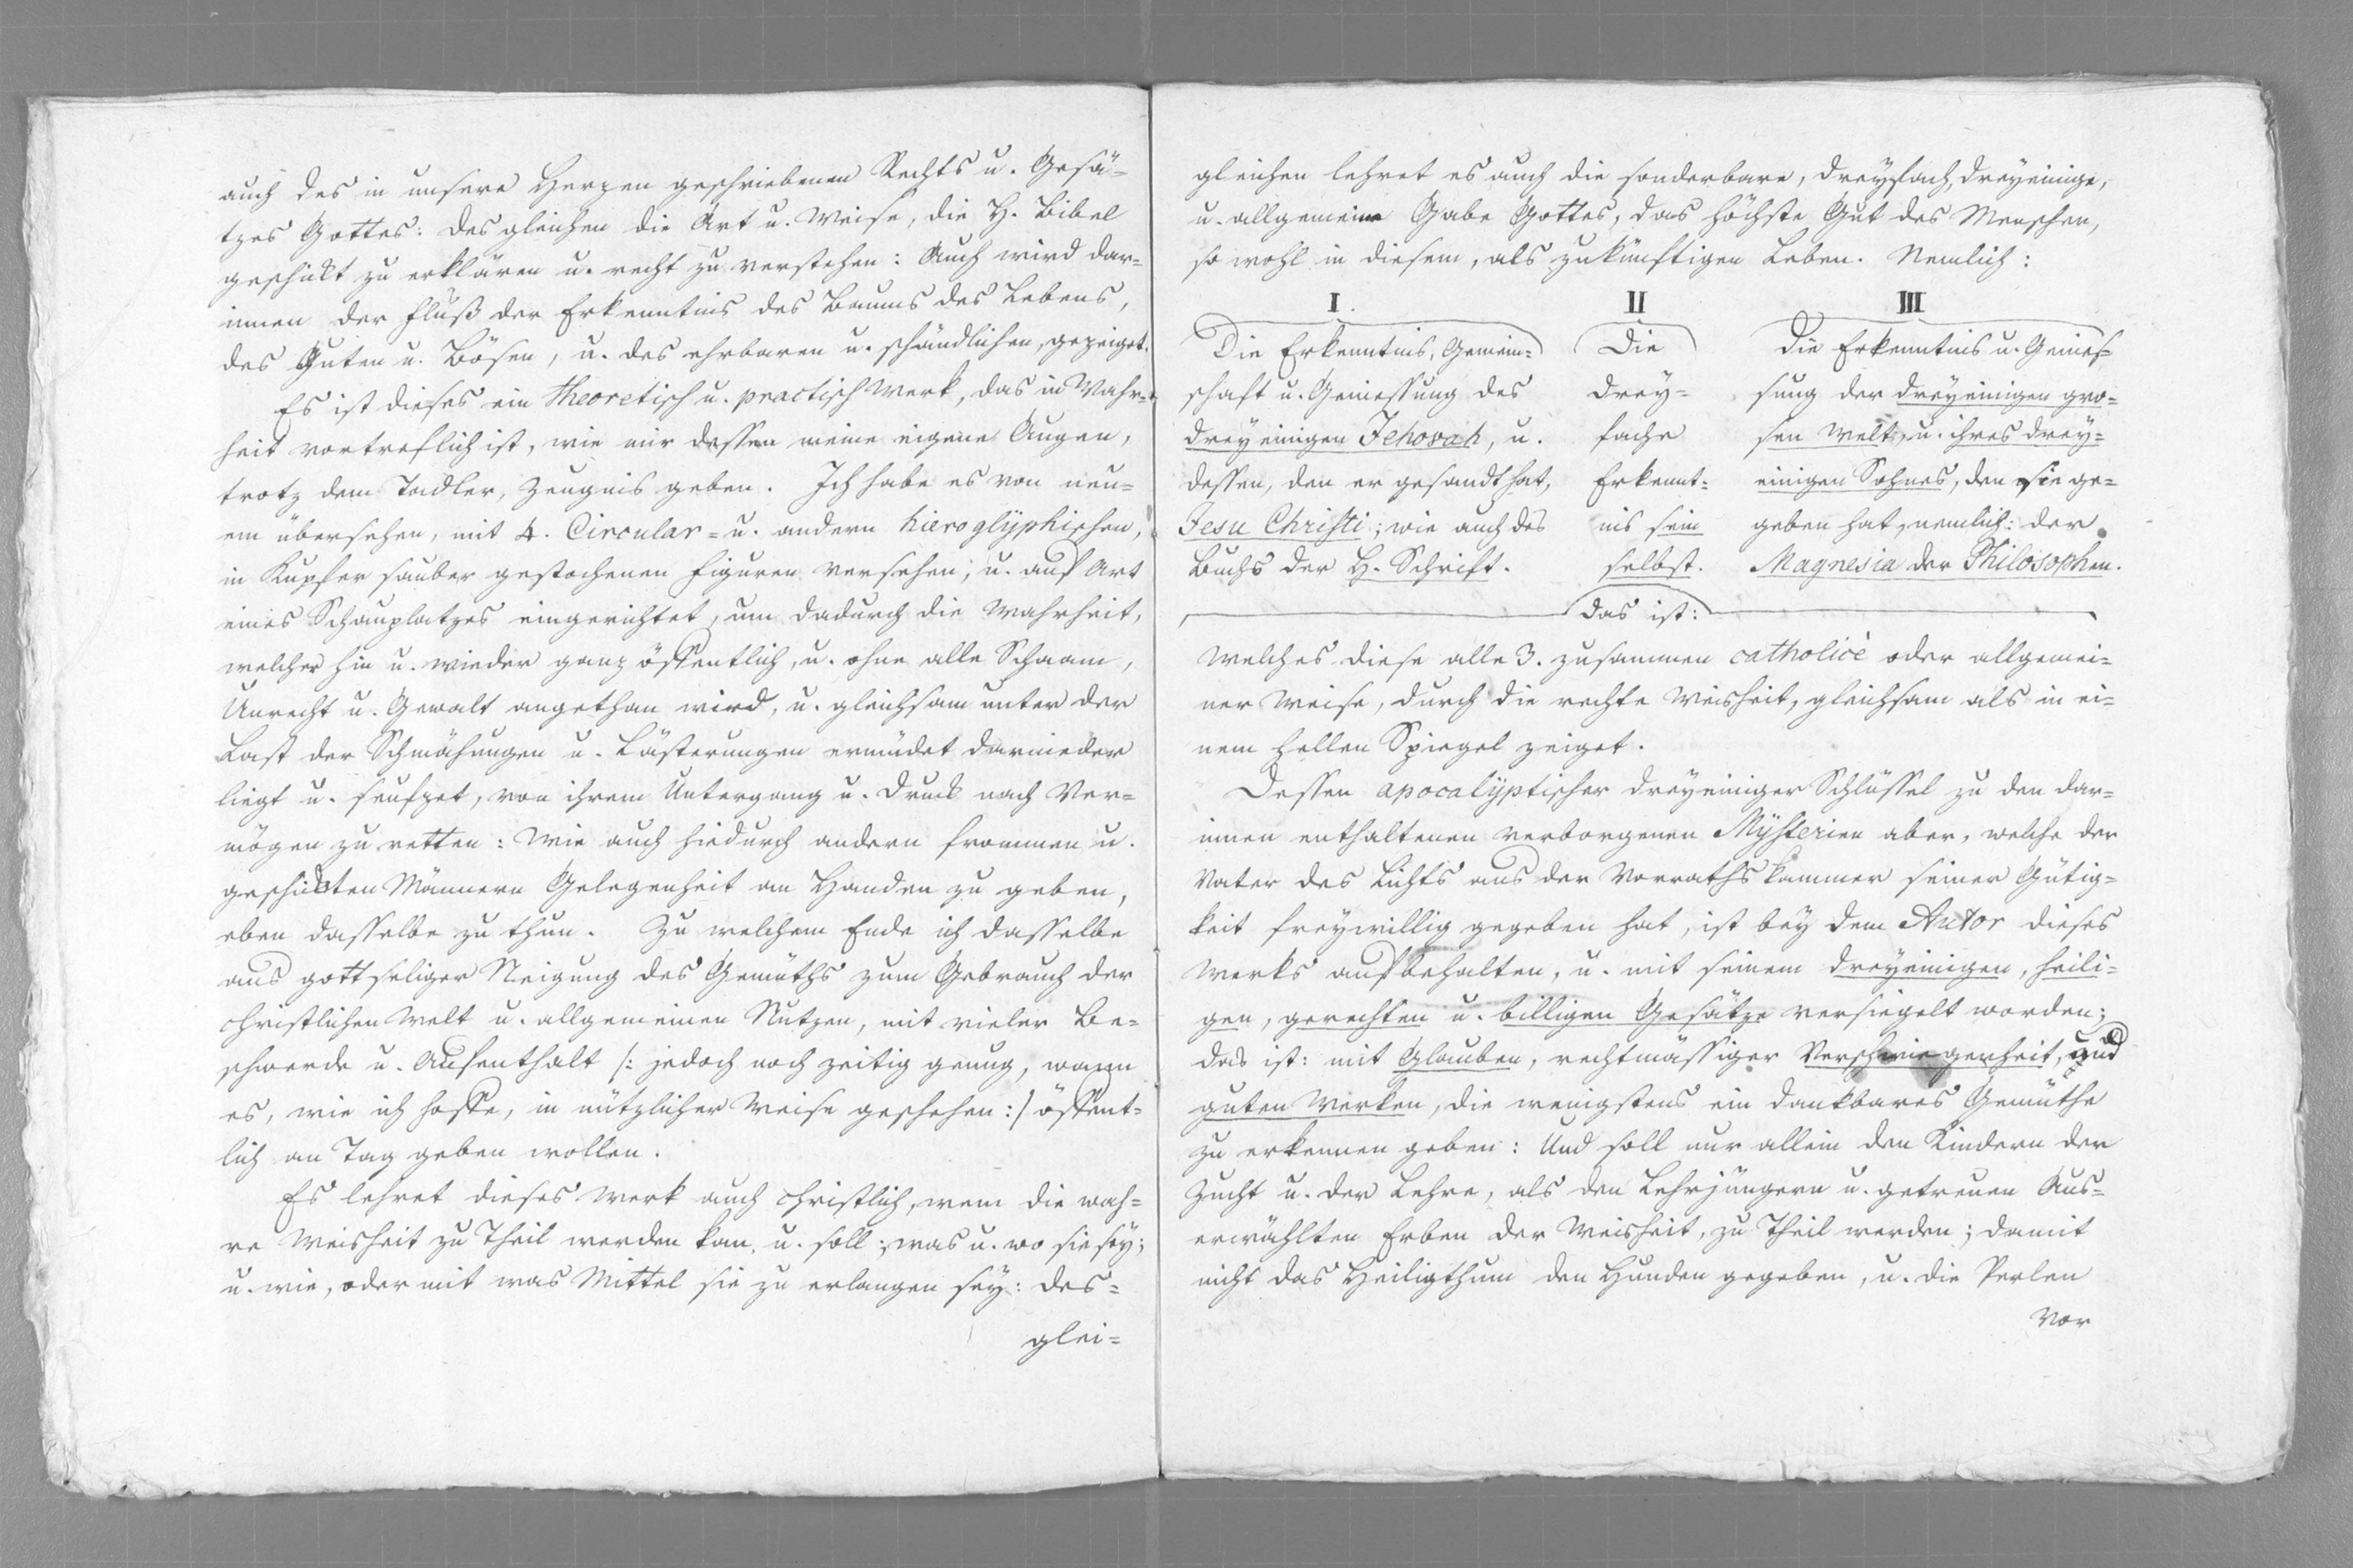 auch des in unsere Herzen geschriebenen Rechts u. Gesä-
tzes Gottes: desgleichen die Art u. Weise, die H. Bibel
geschikt zu erklären u. recht zu verstehen: Auch wird dar-
innen der Fluß der Erkenntnis des Baums des Lebens,
des Guten u. Bösen, u. des ehrbaren u. schändlichen, gezeiget.
Es ist dieses ein theoretisch u. practisch Werk, das in Wahr-
heit vortreflich ist, wie mir dessen meine eigene Augen,
trotz dem Tadler, Zeugnis geben. Ich habe es von neu-
em übersehen, mit 4. Circular- u. andern hieroglÿphischen,
in Kupfer sauber gestochenen Figuren versehen; u. auf Art
eines Schauplatzes eingerichtet, um dadurch die Wahrheit,
welcher hin u. wieder ganz öffentlich, u. ohne alle Schaam,
Unrecht u. Gewalt angethan wird, u. gleichsam unter der
Last der Schmähungen u. Lästerungen ermüdet darnieder
liegt u. seufzet, von ihrem Untergang u. Druck nach Ver-
mögen zu retten: Wie auch hiedurch andern frommen u.
geschickten Männern Gelegenheit an Handen zu geben,
eben dasselbe zu thun. Zu welchem Ende ich dasselbe
aus gottseliger Neigung des Gemüths zum Gebrauch der
christlichen Welt u. allgemeinen Nutzen, mit vieler Be-
schwerde u. Aufenthalt /: jedoch noch zeitig genug, wann
es, wie ich hoffe, in nützlicher Weise geschehen :/ öffent-
lich an Tag geben wollen.
Es lehret dieses Werk auch christlich, wem die wah-
re Weisheit zu Theil werden kan, u. soll; was u. wo sie seÿ;
u. wie, oder mit was Mittel sie zu erlangen seÿ: des-
glei-
gleichen lehret es auch die sonderbare, dreÿfach, dreÿeinige,
u. allgemeine Gabe Gottes, das höchste Gut des Menschen,
so wohl in diesem, als zukünftigen Leben. Nemlich:
I. II III
Die Erkenntnis, Gemein- Die Die Erkenntnis u. Genies-
schaft u. Geniessung des dreÿ- sung der dreÿeinigen gro-
dreÿeinigen Jehovah, u. fache sen Welt, u. ihres dreÿ-
dessen, den er gesandt hat, Erkennt- einigen Sohnes, den sie ge-
Jesu Christi; wie auch des nis sein geben hat, nemlich: der
Buchs der H. Schrift. selbst. Magnesia der Philosophen.
das ist:
Welches diese alle 3. zusammen catholicè oder allgemei-
ner Weise, durch die rechte Weisheit, gleichsam als in ei-
nem hellen Spiegel zeiget.
Dessen apocalÿptischer dreÿeiniger Schlüssel zu den dar-
innen enthaltenen verborgenen Mÿsterien aber, welche der
Vater des Lichts aus der Vorrathskammer seiner Gütig-
keit freÿwillig gegeben hat, ist beÿ dem Autor dieses
Werks aufbehalten, u. mit seinem dreÿeinigen, heili-
gen, gerechten u. billigen Gesätze versiegelt worden;
das ist: mit Glauben, rechtmässiger Verschwiegenheit, und
guten Werken, die wenigstens ein dankbares Gemüthe
zu erkennen geben: Und soll nur allein den Kindern der
Zucht u. der Lehre, als den Lehrjüngern u. getreuen Aus-
erwählten Erben der Weisheit, zu Theil werden; damit
nicht das Heiligthum den Hunden gegeben, u. die Perlen
vor